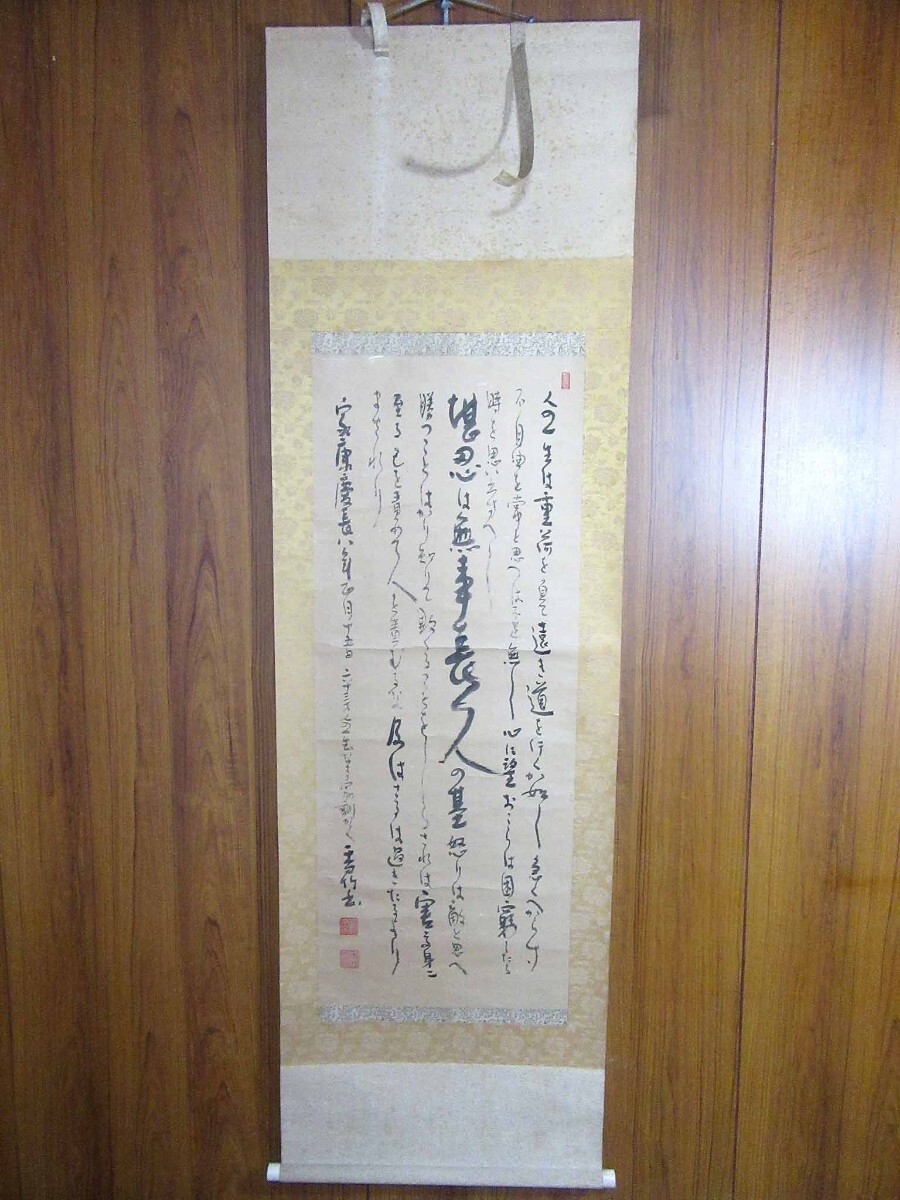 人の一生は重荷を負て遠き道を行くか如し急くへからす
不自由を常と思へは不足無し心に望おこらは困窮したる
時を思ひ出すへし
堪忍は無事長久の基怒りは敵と思へ
勝つことはかり知りて敗くることをしらされは害其身に
至る己を責めて人を責むるな及はさるは過きたるより
まされり
家康慶長八年正月十五日